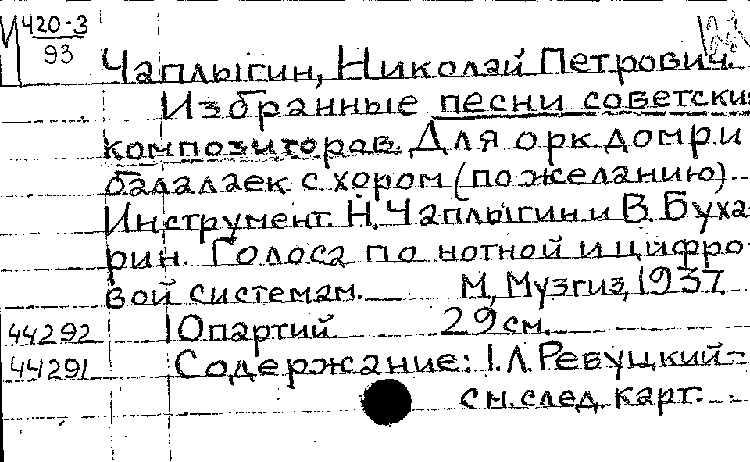 Ч20-3
93
Чаплыгин, Николай Петрович.
Избранные песни советски
композиторов. Для орк. домр и
балалаек с хором (по желанию).
Инструмент. Н. Чаплыгин и В. Буха-
рин. Голоса по нотной и цифро
вой системам. М, Музгиз, 1937.
44292 10партий 29см.
44291 Содержание: 1. Л. Ревуцкий-
см. след. карт.